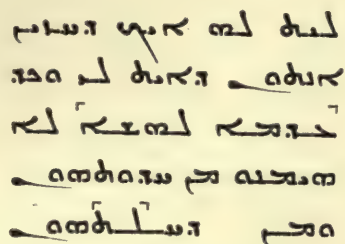 ܠܝܬ ܠܗ ܐܝܟ ܕܚܙܝܢ
ܐܢܬܘܢ ܕܐܝܬ ܠܝ ܘܟܕ
ܥܕܡܐ ܠܗܫܐ ܠܐ
ܗܝܡܢܘ ܡܢ ܚܕܘܬܗܘܢ
ܘܡܢ ܕܚܠܬܗܘܢ